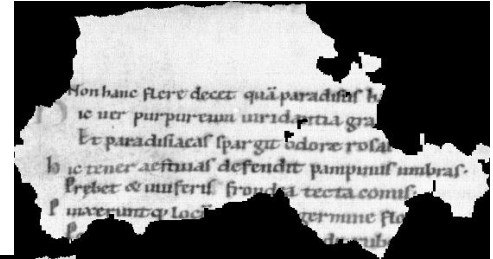 Non hanc flere decet quā paradisus h
ic uer purpureum uiridantia gra
Et paradisiacas spargit odore rosa
h ic tener aestiuas defendit pampinus umbras.
Prebet & uuiferis frondea tecta comis.
P inxerunt q; locū germine flo
de rub